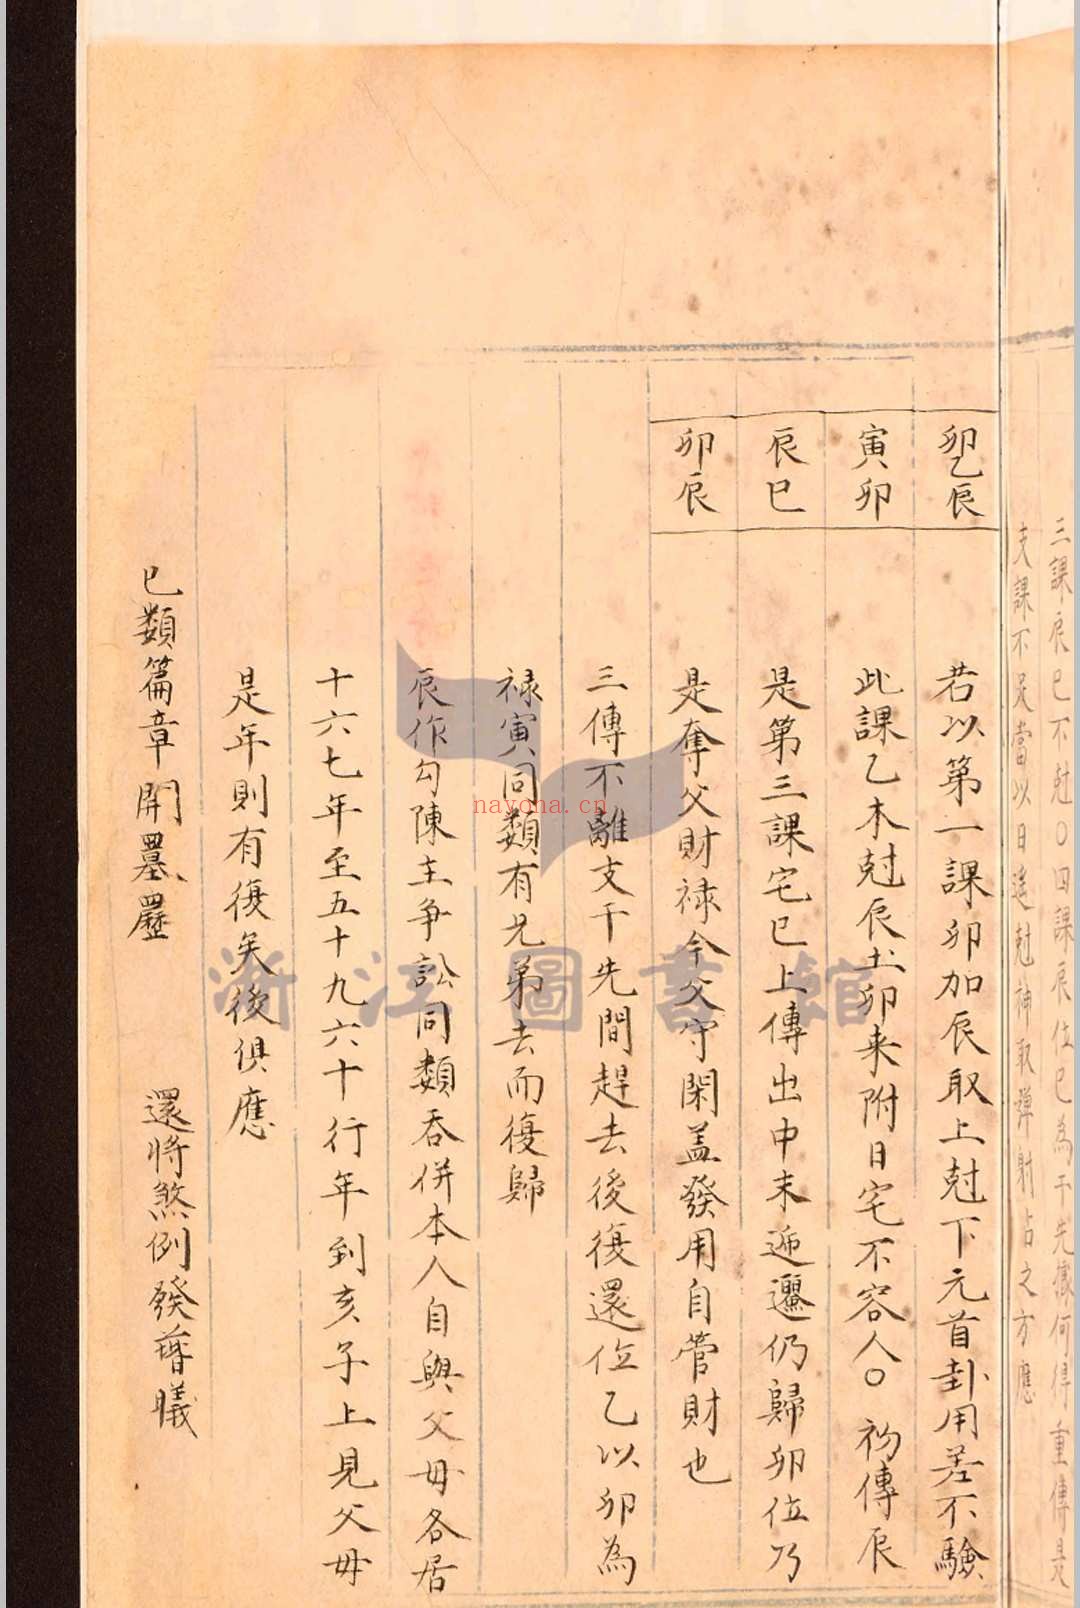 三課辰巳不尅〇四課辰位巳為干先據何得重傳是
支課不足當以日遙尅神取彈射占之方應
卯乙辰
若以第一課卯加辰取上尅下元首卦用差不驗
寅卯
此課乙木尅辰土卯来附日宅不容人〇初傳辰
辰巳
是第三課宅巳上傳出中末遞遷仍歸卯位乃
卯辰
是奪父財祿令父守閑盖發用自管財也
三傳不離支干先間趕去後復還位乙以卯為
祿寅同類有兄弟去而復歸
辰作勾陳主争訟同類吞併本人自與父母各居
十六七年至五十九六十行年到亥子上見父母
是年則有復矣後俱應
巳類篇章開墨 還將煞例發
浙江圖書館
nayona.cn